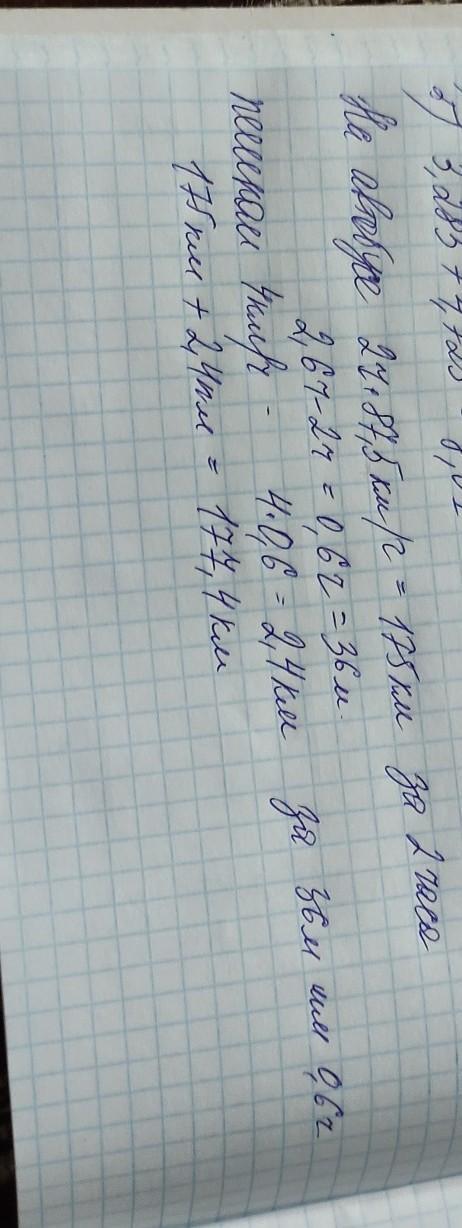 2) 3,285 + 4,725 = 8,01
На автобусе 2ч·87,5км/ч = 175км за 2 часа
2,6ч-2ч = 0,6ч = 36м.
пешком 4км/ч - 4·0,6 = 2,4км за 36м или 0,6ч
175км + 2,4км = 177,4км